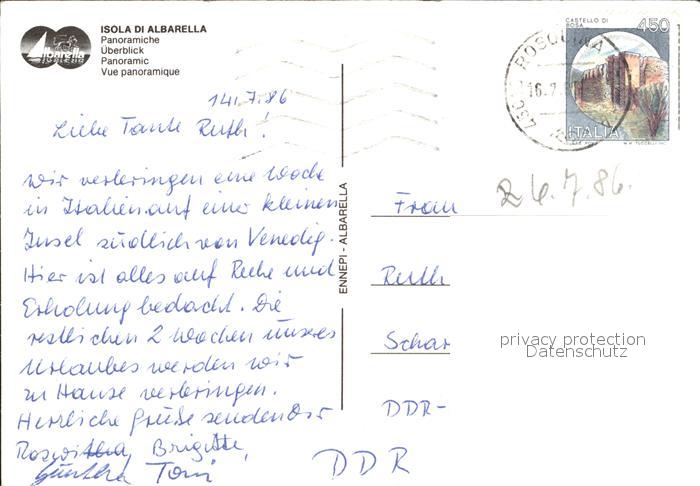 ISOLA DI ALBARELLA
Panoramiche
Überblick
Panoramic
Vue panoramique
Albarella
14.7.86
Liebe Tante Ruth!
Wir verbringen eine Woche
in Italien auf einer kleinen
Insel südlich von Venedig.
Hier ist alles auf Ruhe und
Erholung bedacht. Die
restlichen 2 Wochen unseres
Urlaubes werden wir
zu Hause verbringen.
Herzliche Grüße senden Dir
Roswitha, Brigitte,
Günther Toni
ENNEPI - ALBARELLA
CASTELLO DI
BOSA
450
ITALIA
ROSOLINA
16.7
26.7.86.
Frau
Ruth
Schar
privacy protection
Datenschutz
DDR-
DDR